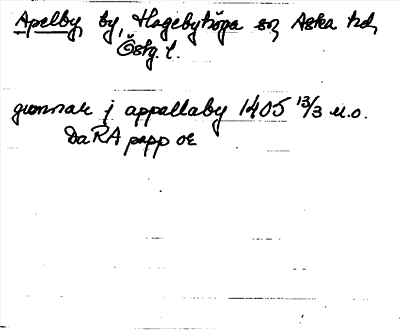 Apelby, by, Hagebyhöga sn, Aska hd,
Östg. l.
gunnar j appallaby 1405 13/3 u.o.
DaRA papp oe